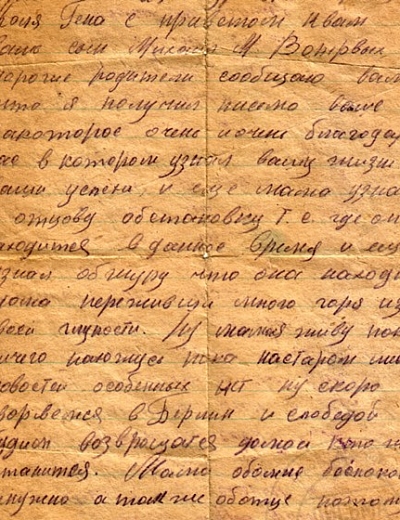 Гена с приветом к вам
ваш сын Михаил М
дорогие родители сообщаю вам
что я получил писмо ваше
закоторое очень и очень благодар
в котором узнал вашу жизнь
ваши успехи, и ище мама узнал
отцову обстановку т.е. где он
находится в данное время и ещ
узнал об что она находи
дома переживши много горя из
своей глупости. Ну мама живу пок
ничего нахожус пока настаром ме
новостей особенных нет ну скоро
ворвемся в Берлин и слободой
будим возвращатся домой кто
останится. Мама обомне беспоко
ненужно а также оботце